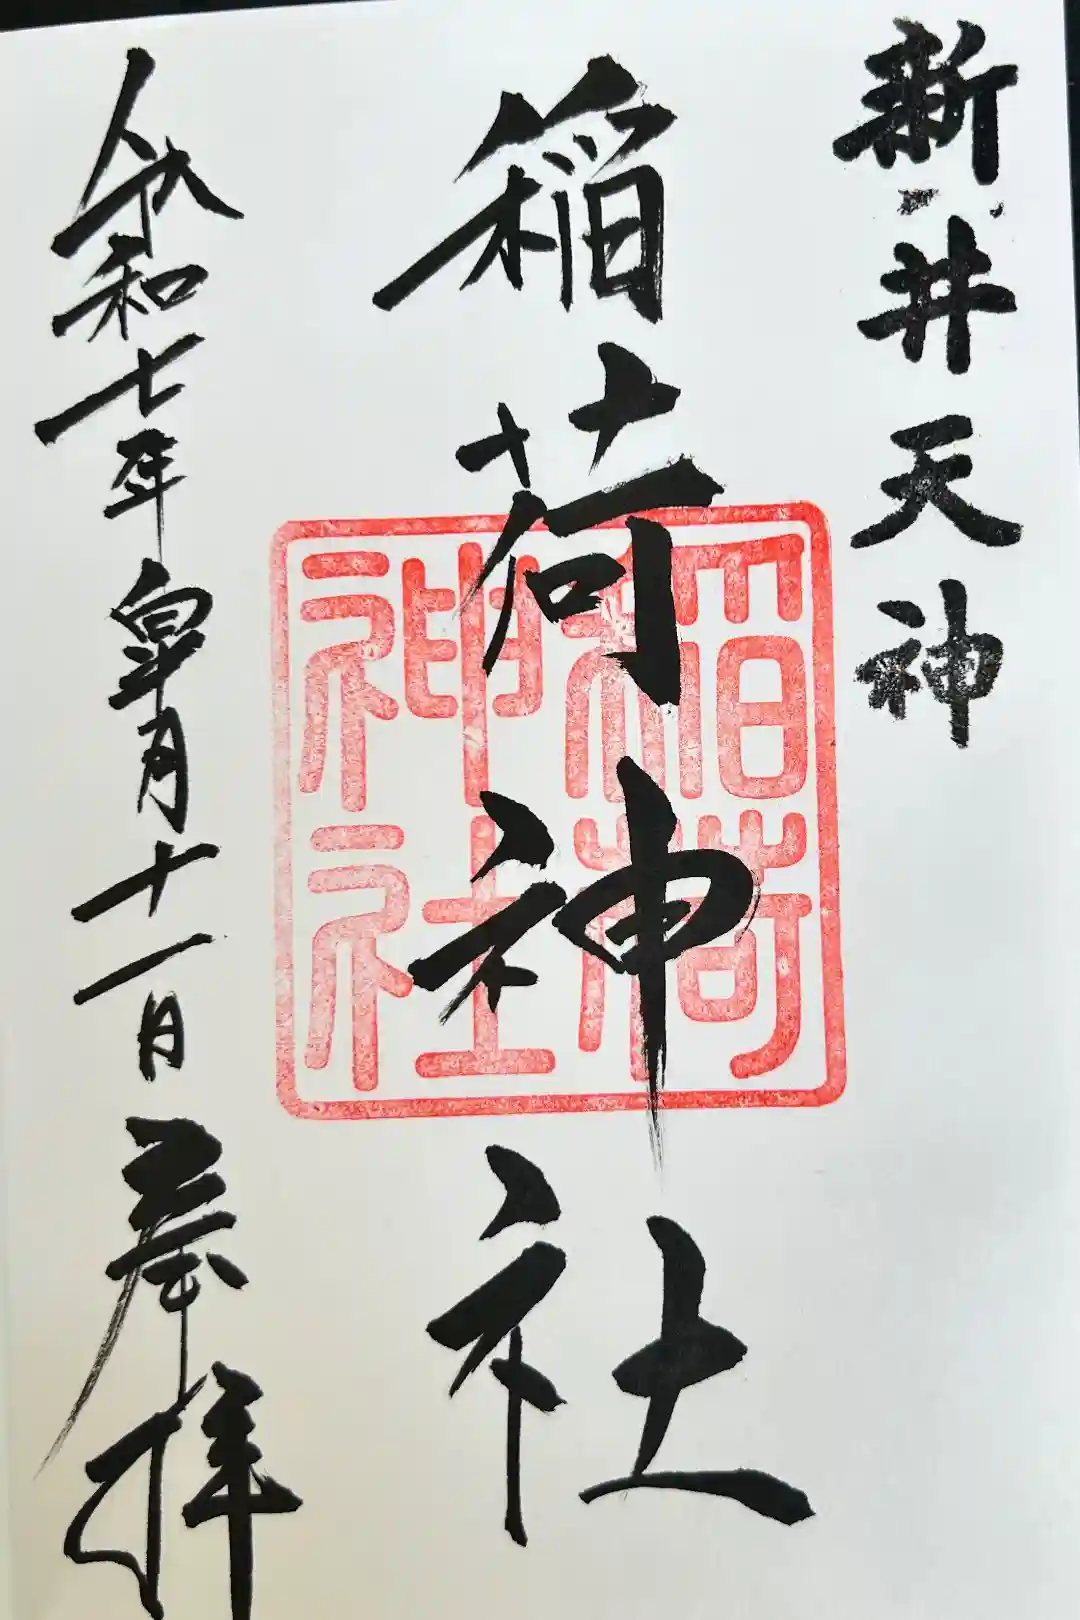 新井天神
稲荷神社
稲荷神社
令和七年皐月十一日奉拝